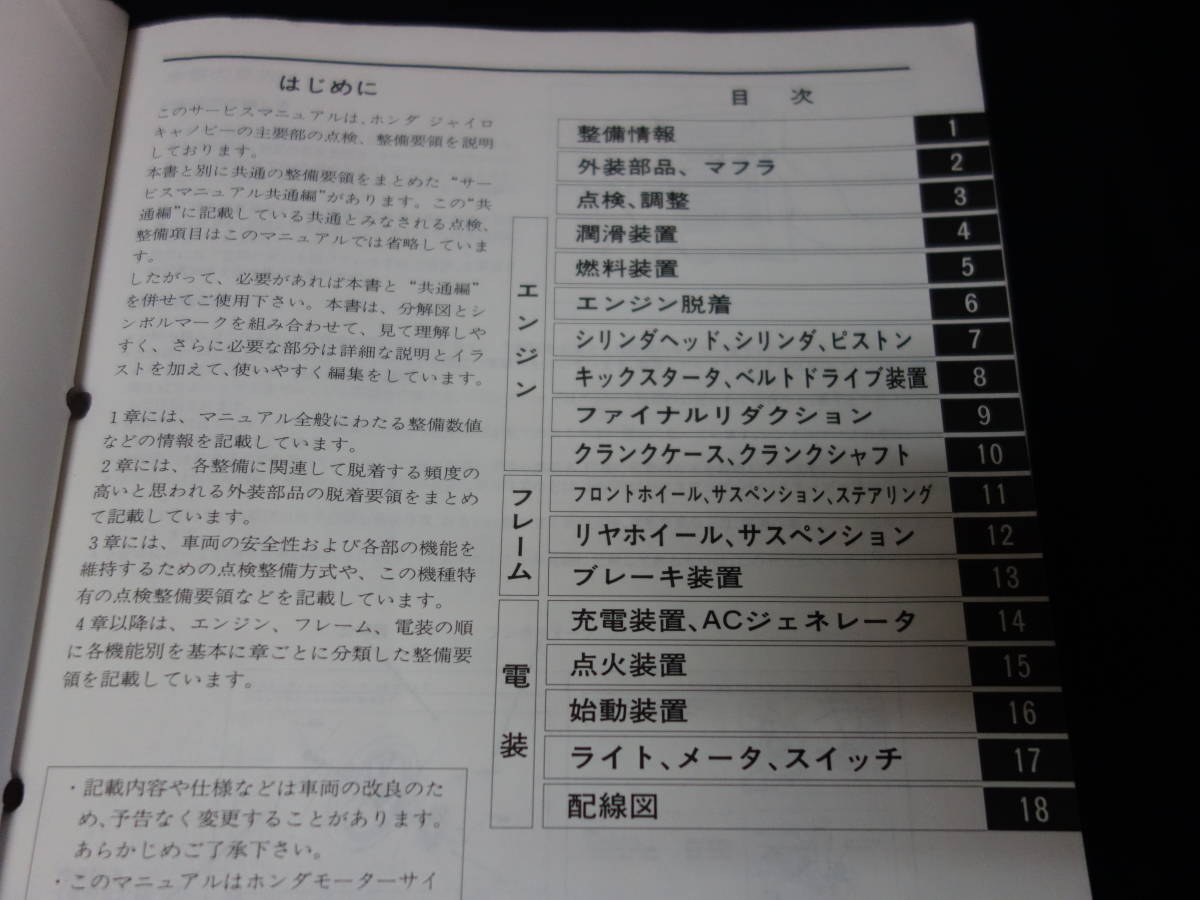 はじめに
このサービスマニュアルは、ホンダ ジャイロ
キャノピーの主要部の点検、整備要領を説明
しております。
本書と別に共通の整備要領をまとめた “サー
ビスマニュアル共通編”があります。この“共
通編”に記載している共通とみなされる点検、
整備項目はこのマニュアルでは省略していま
す。
したがって、必要があれば本書と “共通編”
を併せてご使用下さい。本書は、分解図とシ
ンボルマークを組み合わせて、見て理解しや
すく、さらに必要な部分は詳細な説明とイラ
ストを加えて、使いやすく編集をしています。
1章には、マニュアル全般にわたる整備数値
などの情報を記載しています。
2章には、各整備に関連して脱着する頻度の
高いと思われる外装部品の脱着要領をまとめ
て記載しています。
3章には、車両の安全性および各部の機能を
維持するための点検整備方式や、この機種特
有の点検整備要領などを記載しています。
4章以降は、エンジン、フレーム、電装の順
に各機能別を基本に章ごとに分類した整備要
領を記載しています。
・記載内容や仕様などは車両の改良のた
め、予告なく変更することがあります。
あらかじめご了承下さい。
・このマニュアルはホンダモーターサイ
目 次
整備情報 1
外装部品、マフラ 2
点検、調整 3
エンジン
潤滑装置 4
燃料装置 5
エンジン脱着 6
シリンダヘッド、シリンダ、ピストン 7
キックスタータ、ベルトドライブ装置 8
ファイナルリダクション 9
クランクケース、クランクシャフト 10
フレーム
フロントホイール、サスペンション、ステアリング 11
リヤホイール、サスペンション 12
ブレーキ装置 13
電装
充電装置、ACジェネレータ 14
点火装置 15
始動装置 16
ライト、メータ、スイッチ 17
配線図 18